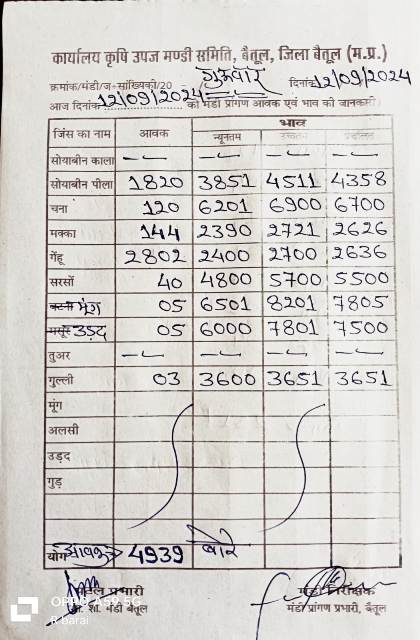 कार्यालय कृषि उपज मण्डी समिति, बैतूल, जिला बैतूल (म.प्र.)
क्रमांक/मंडी/ज-सांख्यिकी/20 गुरूवार दिनांक 12/09/2024
आज दिनांक 12/09/2024 को मंडी प्रांगण आवक एवं भाव की जानकारी
जिंस का नाम आवक भाव
न्यूनतम
सोयाबीन काला — — — —
सोयाबीन पीला 1820 3851 4511 4358
चना 120 6201 6900 6700
मक्का 144 2390 2721 2626
गेंहू 2802 2400 2700 2636
सरसों 40 4800 5700 5500
मूंग 05 6501 8201 7805
मसूर उड़द 05 6000 7801 7500
तुअर — — — —
गुल्ली 03 3600 3651 3651
मूंग
अलसी
उड़द
गुड़
योग आवक 4939 बोरे
प्रभारी मंडी निरीक्षक
शा. मंडी बैतूल मंडी प्रांगण प्रभारी, बैतूल
OPPO A59 5G
R barai